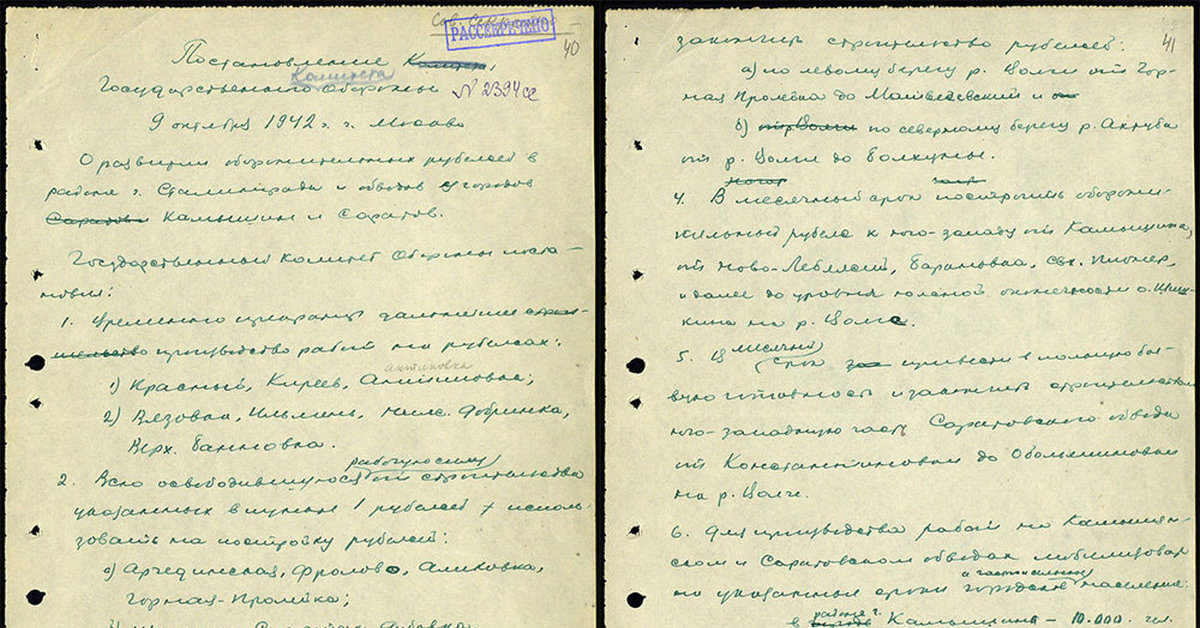 Сов. Секретно
РАССЕКРЕЧЕНО
40
Постановление Комитета,
Комитета
Государственного Обороны № 2394сс
9 октября 1942 г. г. Москва
О развитии оборонительных рубежей в
районе г. Сталинграда и обводов городов
Саратов и Камышин и Саратов.
Государственный Комитет Обороны поста-
новил:
1. Временно прекратить дальнейшее строи-
тельство производство работ на рубежах:
антиповка
1) Красный, Киреев, Антиповка;
2) Вязовка, Ильмень, Ниж. Добринка,
Верх. Банновка.
рабочую силу
2. Всю освободившуюся от строительства
указанных в пункте 1 рубежей исполь-
зовать на постройку рубежей:
а) Арчединская, Фролово, Аликовка,
Горная-Пролейка;
41
закончить строительство рубежей:
а) по левому берегу р. Волги от Гор-
ная Пролейка до Матвеевский и
б) по северному берегу р. Ахтуба
от р. Волги до Болхуны.
4. В месячный срок построить оборони-
тельный рубеж к юго-западу от Камышина,
от Ново-Лебяжий, Барановка, свх. Пионер,
и далее до уровня южной оконечности о. Шиш-
кина на р. Волге.
месячный
5. В срок привести в полную бое-
вую готовность и закончить строительством
юго-западную часть Саратовского обвода
от Константиновки до
на р. Волге.
6. Для производства работ на Камышин-
ском и Саратовском обводах мобилизовать
и частично
на указанные сроки городское население:
районе г.
в Камышина – 10.000 чел.